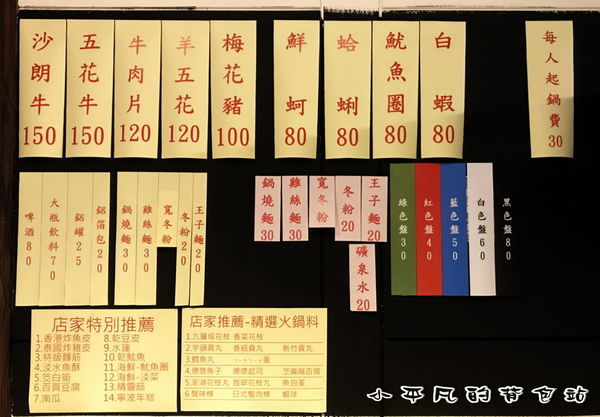 沙朗牛 150
五花牛 150
牛肉片 120
羊五花 120
梅花豬 100
鮮蚵 80
蛤蜊 80
魷魚圈 80
白蝦 80
每人起鍋費 30
啤酒80
大瓶飲料70
鋁罐25
鋁箔包20
鍋燒麵30
雞絲麵30
寬冬粉
冬粉20
王子麵20
鍋燒麵30
雞絲麵30
寬冬粉
冬粉20
王子麵20
礦泉水20
綠色盤30
紅色盤40
藍色盤50
白色盤60
黑色盤80
店家特別推薦
1.香港炸魚皮 8.乾豆皮
2.泰國炸豬皮 9.水蓮
3.特級麵筋 10.乾魷魚
4.淡水魚酥 11.海鮮-魷魚圈
5.茭白筍 12.海鮮-淡菜
6.百頁豆腐 13.精靈菇
7.南瓜 14.寧波年糕
店家推薦-精選火鍋料
1.九層塔花枝 香菜花枝
2.芋頭貢丸 香菇貢丸 新竹貢丸
3.鱈魚丸
4.爆漿魚子 爆漿起司 芝麻麻吉燒
5.澎湖花枝丸 翡翠花枝丸 魚包蛋
6.蟹味棒 日式蟹肉棒 蝦球
小平凡的背包站